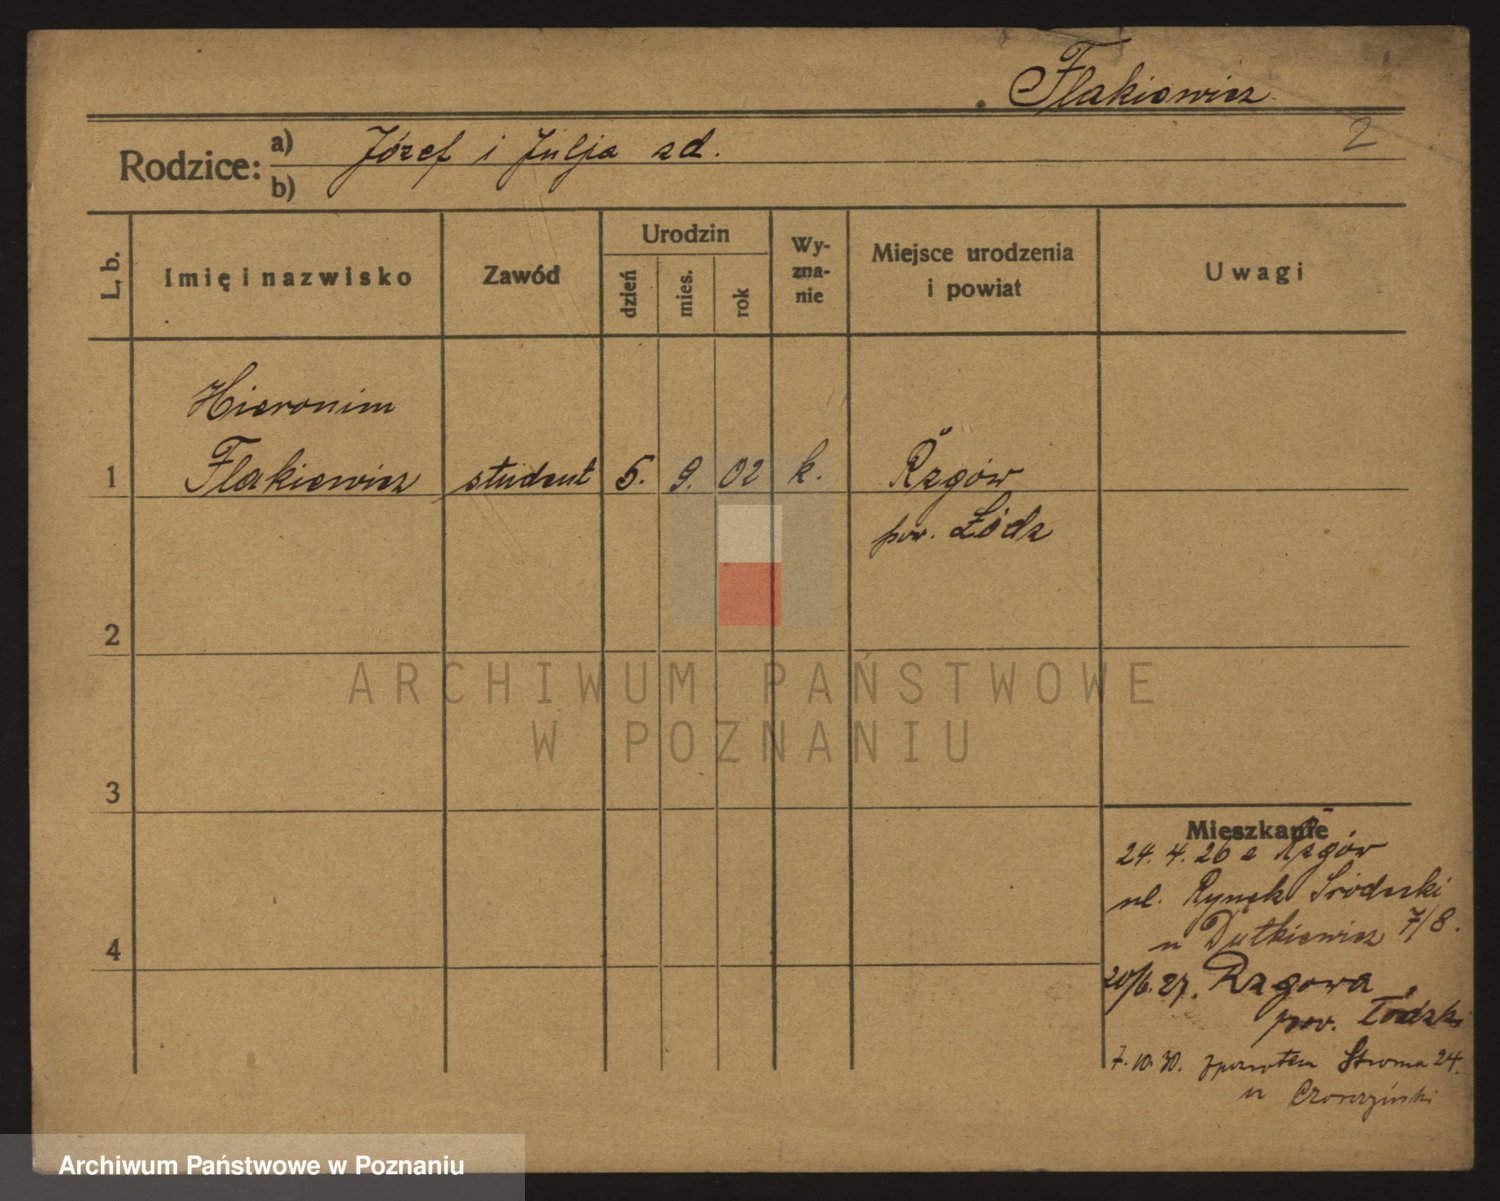 Flakiewicz
2
Rodzice:
a) Józef i Julja zd.
b)
L. b.
Imię i nazwisko
Zawód
Urodzin
dzień
mies.
rok
Wy-
zna-
nie
Miejsce urodzenia
i powiat
Uwagi
Hieronim
1 Flakiewicz student 5. 9. 02 k. Rzgów
pow. Łódz
2
3
4
Mieszkanie
24. 4. 26 z Rzgów
ul. Rynek Śródecki
u Dutkiewicz 7/8.
20/6. 27. Rzgowa
pow. Łódzki
7. 10. 30. Stroma 24.
u
ARCHIWUM PAŃSTWOWE
W POZNANIU
Archiwum Państwowe w Poznaniu